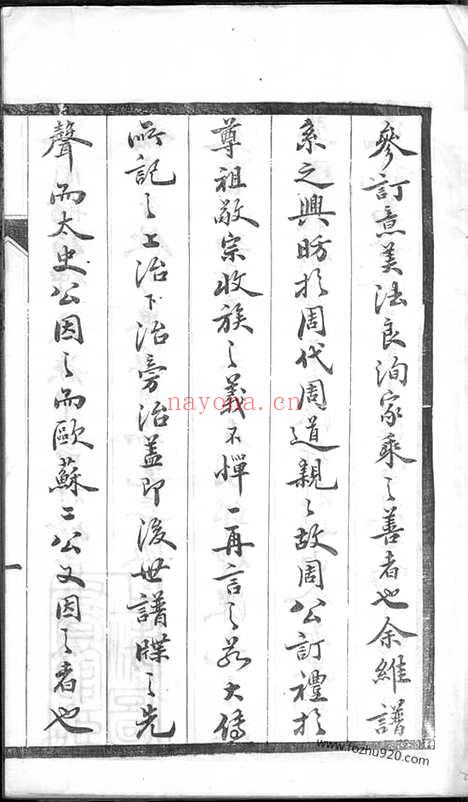 參訂意美法良洵家乘之善者也余維譜
系之興昉於周代周道親〻故周公訂禮於
尊祖敬宗收族之義不憚一再言之若大傳
所記之上治下治旁治蓋即後世譜牒之先
聲而太史公因之而歐蘇二公又因之者也
一
nayona.cn
www.fozhu920.com